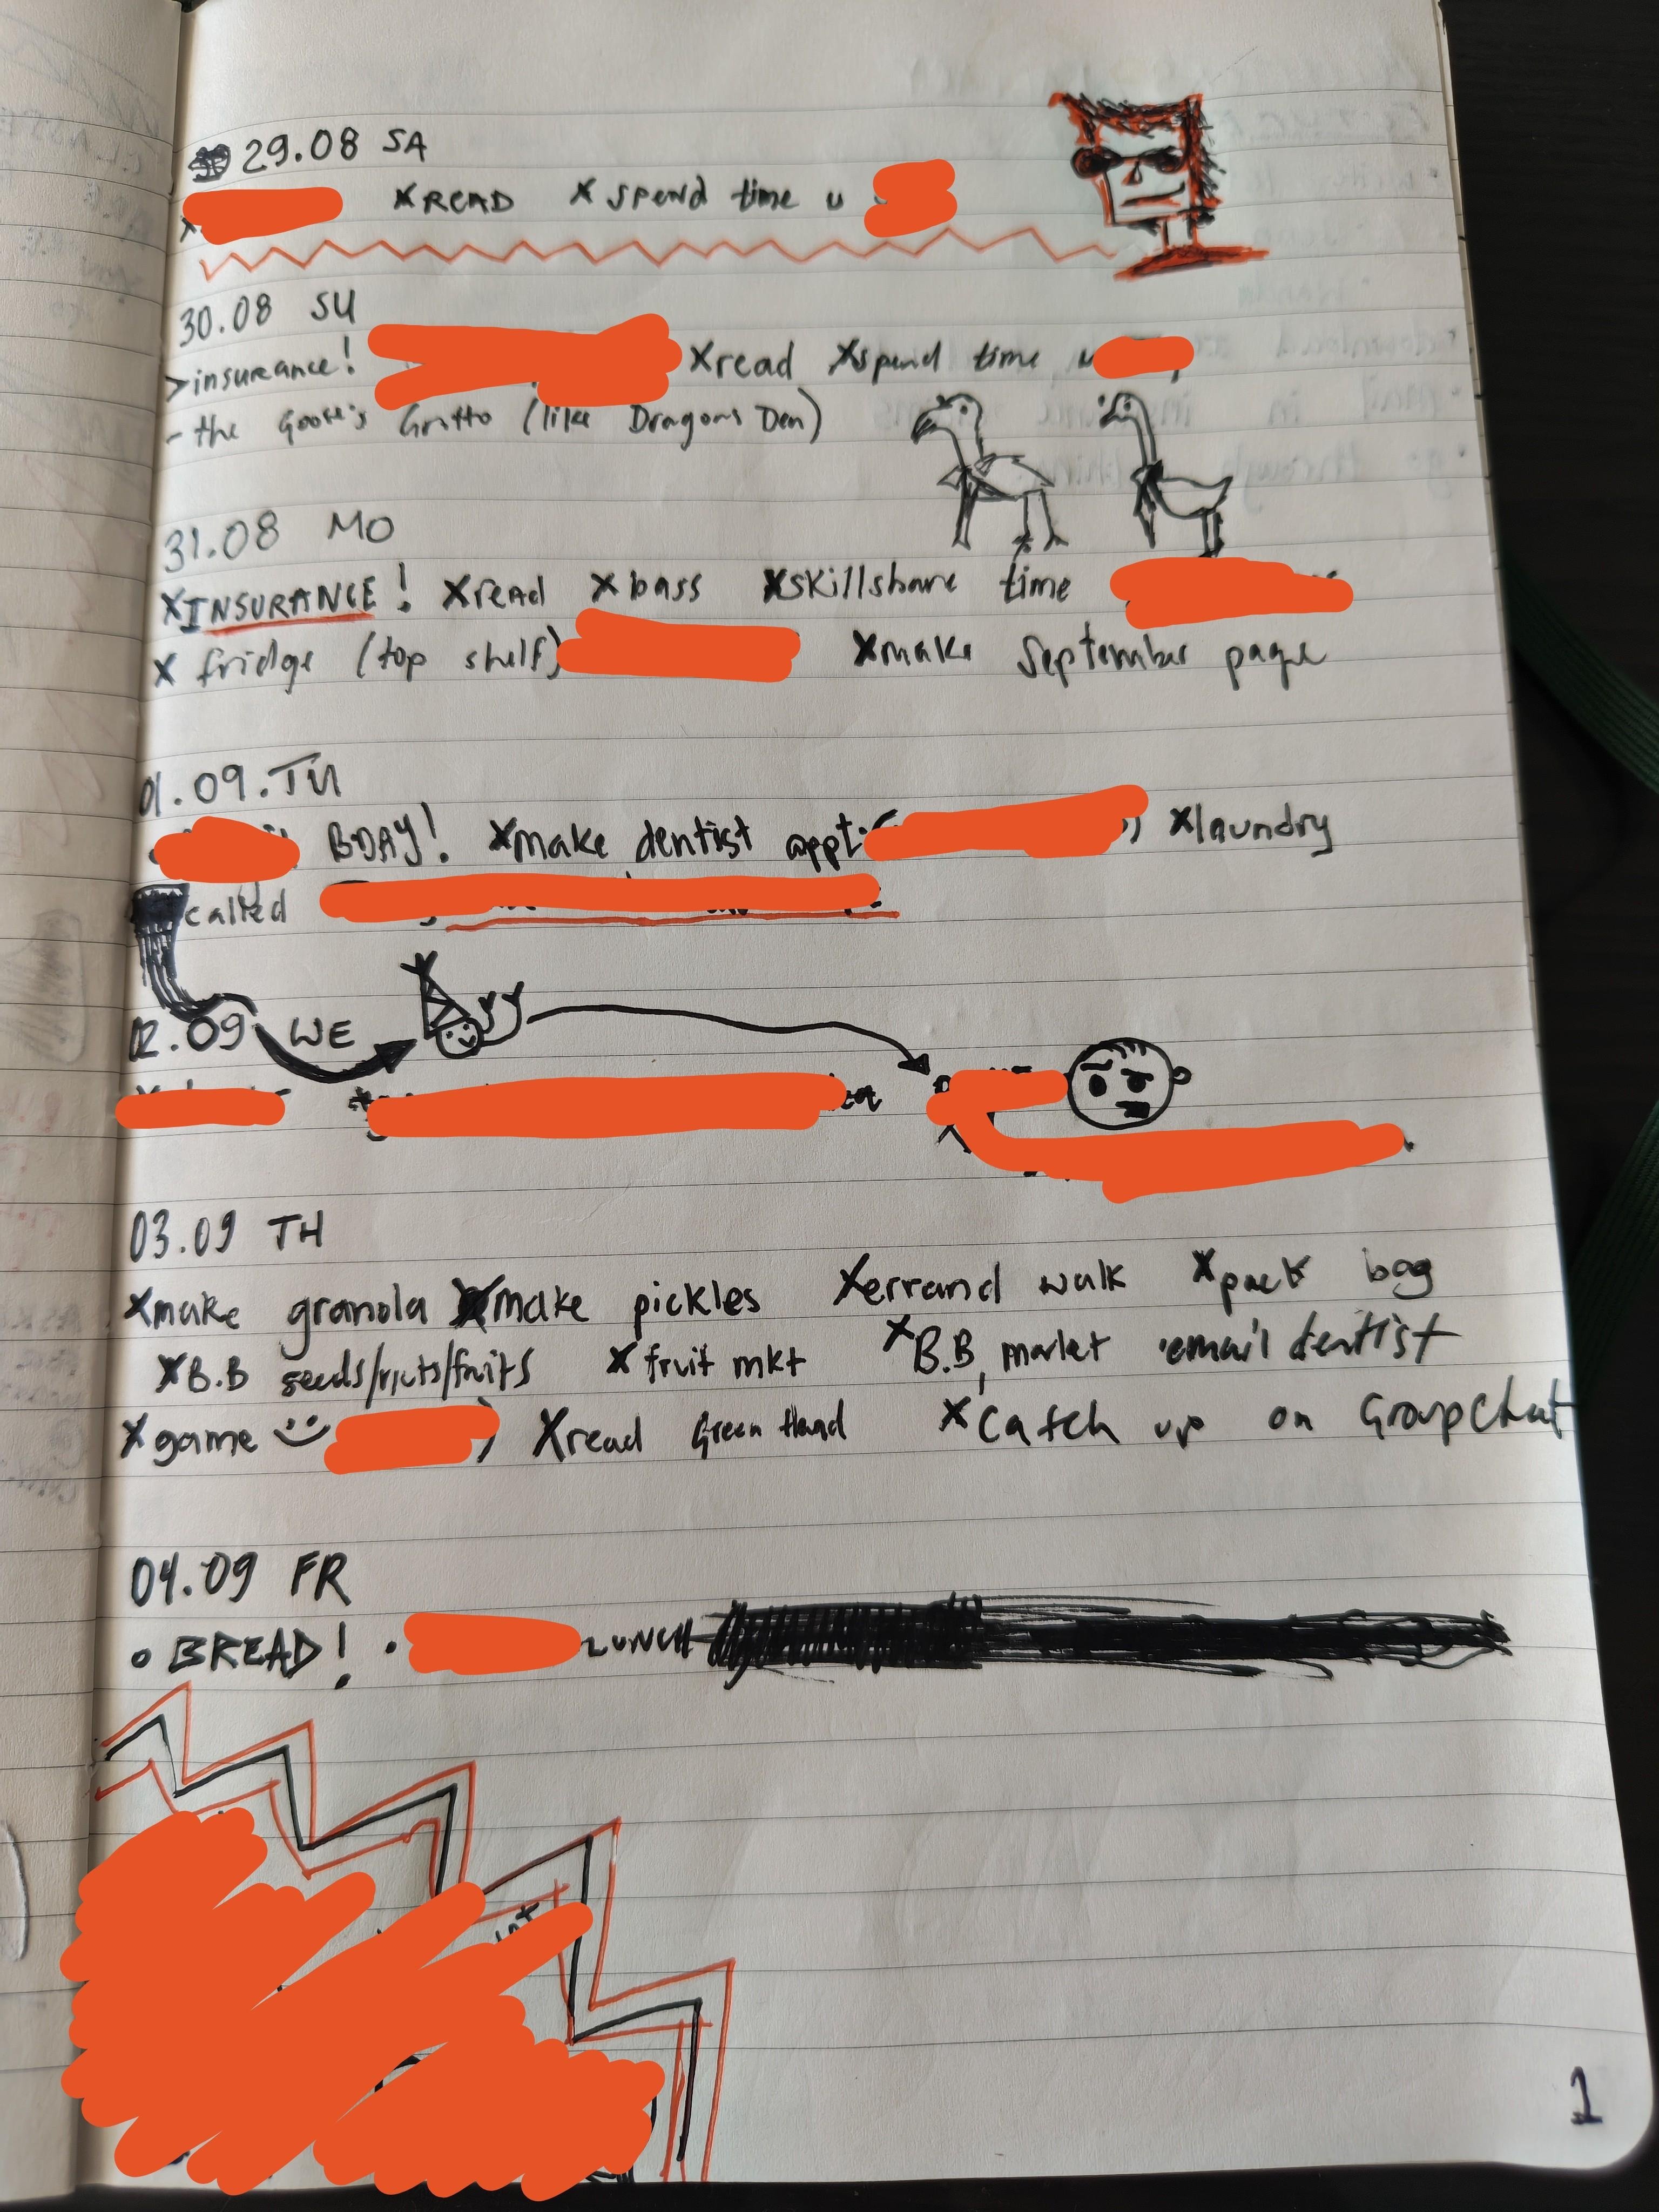 29.08 SA
x xREAD x spend time w
30.08 SU
>insurance! xread xspend time w
- the Goose's Grotto (like Dragons Den)
31.08 MO
xINSURANCE! xread x bass xskillshare time
x fridge (top shelf) xmake September page
01.09.TU
BDAY! xmake dentist appt. xlaundry
called
02.09 WE
03.09 TH
xmake granola xmake pickles xerrand walk xpack bag
xB.B seeds/nuts/fruits x fruit mkt xB.B. market ·email dentist
xgame :) ) xread Green Hand xCatch up on GroupChat
04.09 FR
• BREAD! • LUNCH
1